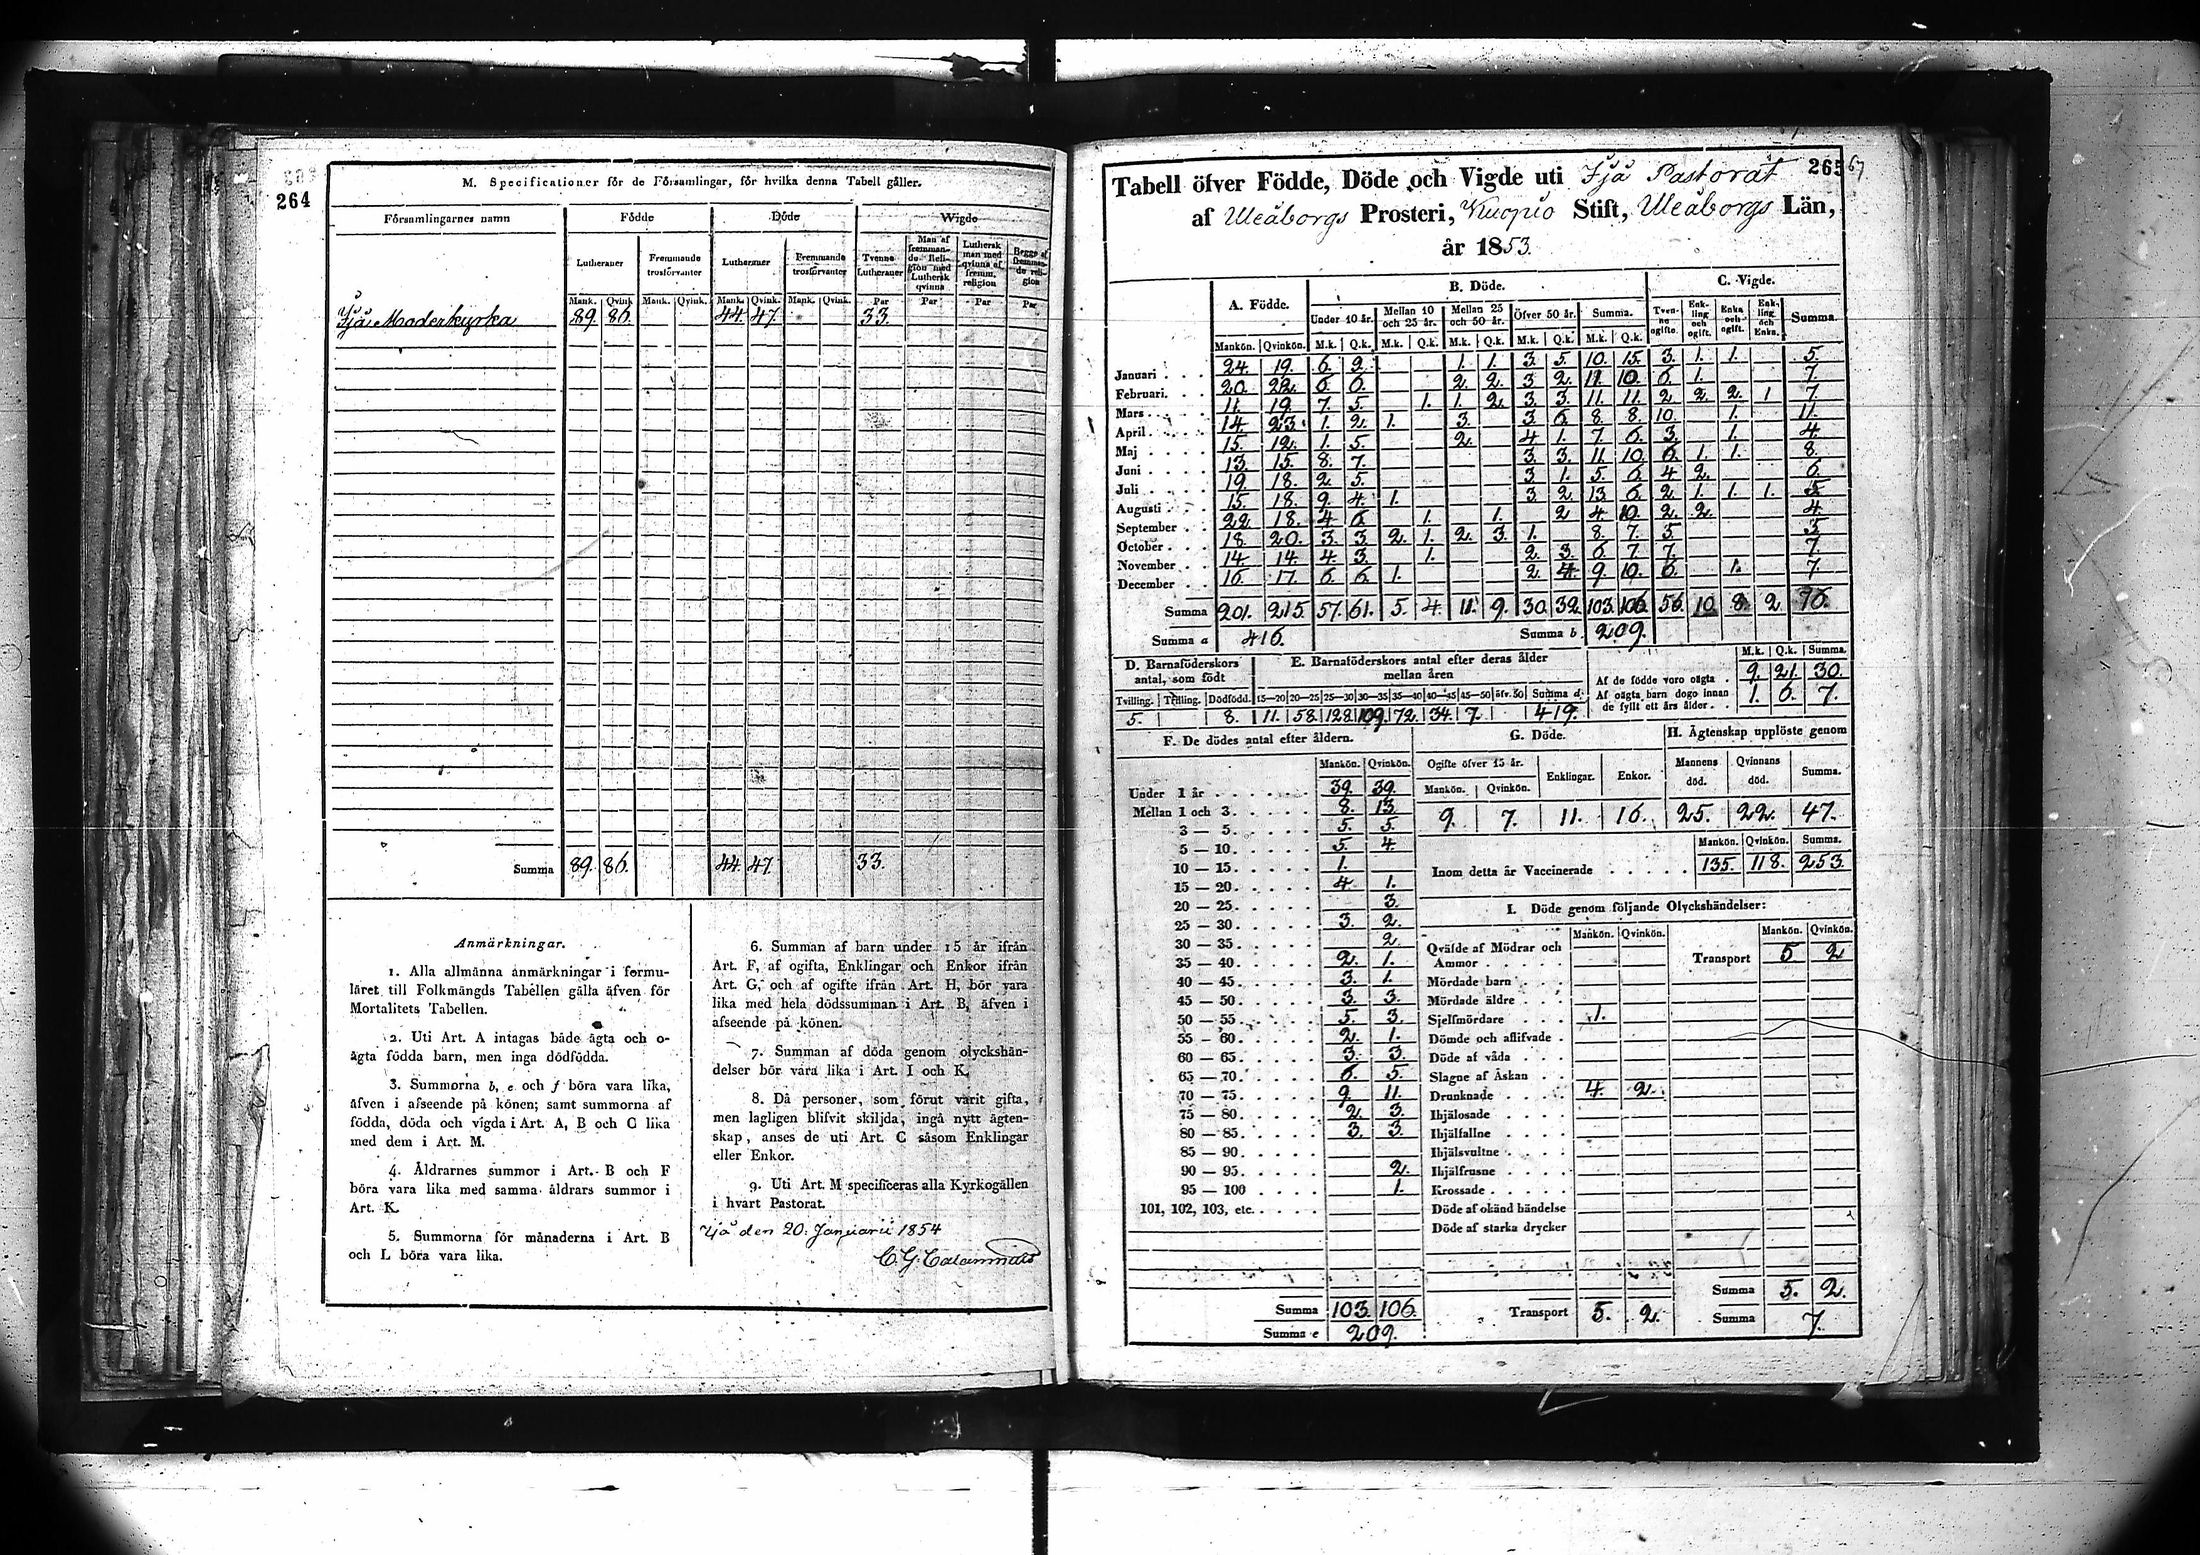 264
M. Specificationer för de Församlingar, för hvilka denna Tabell gäller.
Församlingarnes namn | Födde | Döde | Wigde
Lutheraner | Fremmande trosförvanter | Lutheraner | Fremmande trosförvanter | Tvenne Lutheraner | Man af fremmande Religion med Luthersk qvinna | Luthersk man med qvinna af fremm. religion | Begge af fremmande religion
Mank. | Qvink. | Mank. | Qvink. | Mank. | Qvink. | Mank. | Qvink. | Par | Par | Par | Par
Ijå Moderkyrka | 89. | 86. | 44. | 47. | 33.
Summa | 89. | 86. | 44. | 47. | 33.
Anmärkningar.
1. Alla allmänna anmärkningar i formu-
läret till Folkmängds Tabellen gälla äfven för
Mortalitets Tabellen.
2. Uti Art. A intagas både ägta och o-
ägta födda barn, men inga dödfödda.
3. Summorna b, e och f böra vara lika,
äfven i afseende på könen; samt summorna af
födda, döda och vigda i Art. A, B och C lika
med dem i Art. M.
4. Åldrarnes summor i Art. B och F
böra vara lika med samma åldrars summor i
Art. K.
5. Summorna för månaderna i Art. B
och L böra vara lika.
6. Summan af barn under 15 år ifrån
Art. F, af ogifta, Enklingar och Enkor ifrån
Art. G, och af ogifte ifrån Art. H, bör vara
lika med hela dödssumman i Art. B, äfven i
afseende på könen.
7. Summan af döda genom olyckshän-
delser bör vara lika i Art. I och K.
8. Då personer, som förut varit gifta,
men lagligen blifvit skiljda, ingå nytt ägten-
skap, anses de uti Art. C såsom Enklingar
eller Enkor.
9. Uti Art. M specificeras alla Kyrkogällen
i hvart Pastorat.
Ijå den 20. Januarii 1854
C. G. Calamnius
265
67
Tabell öfver Födde, Döde och Vigde uti Ijå Pastorat
af Uleåborgs Prosteri, Kuopio Stift, Uleåborgs Län,
år 1853.
A. Födde. | B. Döde. | C. Vigde.
Under 10 år. | Mellan 10 och 25 år. | Mellan 25 och 50 år. | Öfver 50 år. | Summa. | Tvenne ogifte. | Enkling och ogift. | Enka och ogift. | Enkling och Enka. | Summa.
Mankön. | Qvinkön. | M.k. | Q.k. | M.k. | Q.k. | M.k. | Q.k. | M.k. | Q.k. | M.k. | Q.k.
Januari | 24. | 19. | 6. | 9. | 1. | 1. | 3. | 5. | 10. | 15. | 3. | 1. | 1. | 5.
Februari | 20. | 22. | 6. | 6. | 2. | 2. | 3 | 2. | 11. | 10. | 6. | 1. | 7.
Mars | 11. | 19. | 7. | 5. | 1. | 1. | 2. | 3. | 3. | 11. | 11. | 2 | 2. | 2. | 1 | 7
April | 14. | 23. | 1. | 2. | 1. | 3. | 3. | 6. | 8. | 8. | 10. | 1. | 11.
Maj | 15. | 12. | 1. | 5. | 2. | 4. | 1. | 7. | 6. | 3. | 1. | 4.
Juni | 13. | 15. | 8. | 7. | 3. | 3. | 11. | 10. | 6. | 1. | 1. | 8.
Juli | 19. | 18. | 2. | 5. | 3 | 1. | 5. | 6. | 4 | 2. | 6.
Augusti | 15. | 18. | 9. | 4. | 1. | 3 | 2. | 13. | 6. | 2. | 1. | 1. | 1. | 5
September | 22. | 18. | 4 | 6. | 1. | 1. | 2 | 4. | 10. | 2. | 2. | 4.
October | 18. | 20. | 3. | 3. | 2. | 1. | 2. | 3. | 1. | 8. | 7. | 5. | 5.
November | 14. | 14. | 4. | 3. | 1. | 2. | 3. | 6 | 7. | 7. | 7.
December | 16. | 17. | 6. | 6. | 1. | 2. | 4. | 9. | 10. | 6. | 1. | 7.
Summa | 201. | 215. | 57. | 61. | 5. | 4. | 11. | 9. | 30. | 32. | 103. | 106. | 56. | 10. | 8. | 2 | 76.
Summa a | 416. | Summa b. | 209.
D. Barnaföderskors antal, som födt | E. Barnaföderskors antal efter deras ålder mellan åren
Tvilling. | Trilling. | Dödfödd. | 15—20 | 20—25 | 25—30 | 30—35 | 35—40 | 40—45 | 45—50 | öfv. 50 | Summa d.
5. | 8. | 11. | 58. | 128. | 109. | 72. | 34. | 7. | 419.
M.k. | Q.k. | Summa.
Af de födde voro oägta . | 9. | 21. | 30.
Af oägta barn dogo innan de fyllt ett års ålder. . | 1. | 6. | 7.
F. De dödes antal efter åldern.
Mankön. | Qvinkön.
Under 1 år | 39. | 39.
Mellan 1 och 3. | 8. | 13
3 — 5. | 5. | 5.
5 — 10. | 5. | 4.
10 — 15. | 1.
15 — 20. | 4. | 1.
20 — 25. | 3.
25 — 30. | 3. | 2.
30 — 35. | 2.
35 — 40. | 2. | 1.
40 — 45. | 3. | 1.
45 — 50. | 3. | 3.
50 — 55. | 5. | 3.
55 — 60. | 2. | 1.
60 — 65. | 3. | 3.
65 — 70. | 6. | 5.
70 — 75. | 9. | 11.
75 — 80. | 2. | 3.
80 — 85. | 3. | 3.
85 — 90.
90 — 95. | 2.
95 — 100 | 1.
101, 102, 103, etc.
Summa | 103. | 106.
Summa e | 209.
G. Döde.
Ogifte öfver 15 år. | Enklingar. | Enkor.
Mankön. | Qvinkön.
9. | 7. | 11. | 16.
H. Ägtenskap upplöste genom
Mannens död. | Qvinnans död. | Summa.
25. | 22. | 47.
Mankön. | Qvinkön. | Summa.
Inom detta år Vaccinerade | 135. | 118. | 253.
I. Döde genom följande Olyckshändelser:
Mankön. | Qvinkön. | Mankön. | Qvinkön.
Qväfde af Mödrar och Ammor | Transport | 5 | 2
Mördade barn
Mördade äldre
Sjelfmördare | 1.
Dömde och aflifvade
Döde af våda
Slagne af Åskan
Drunknade | 4. | 2.
Ihjälosade
Ihjälfallne
Ihjälsvultne
Ihjälfrusne
Krossade
Döde af okänd händelse
Döde af starka drycker
Summa | 5. | 2.
Transport | 5. | 2. | Summa | 7.